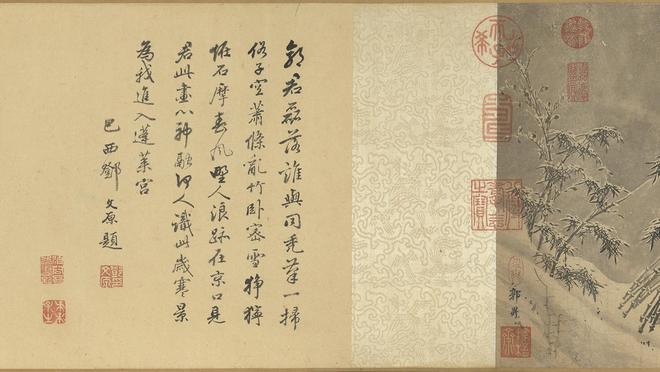 郭君磊落誰與同禿筆一掃
俗子空蕭條亂竹卧密雪猙獰
怪石摩春風野人浪跡在京口見
君此畫心神融何人識此歲寒景
為我進入蓬萊宮
巴西鄧文原題
郭畀